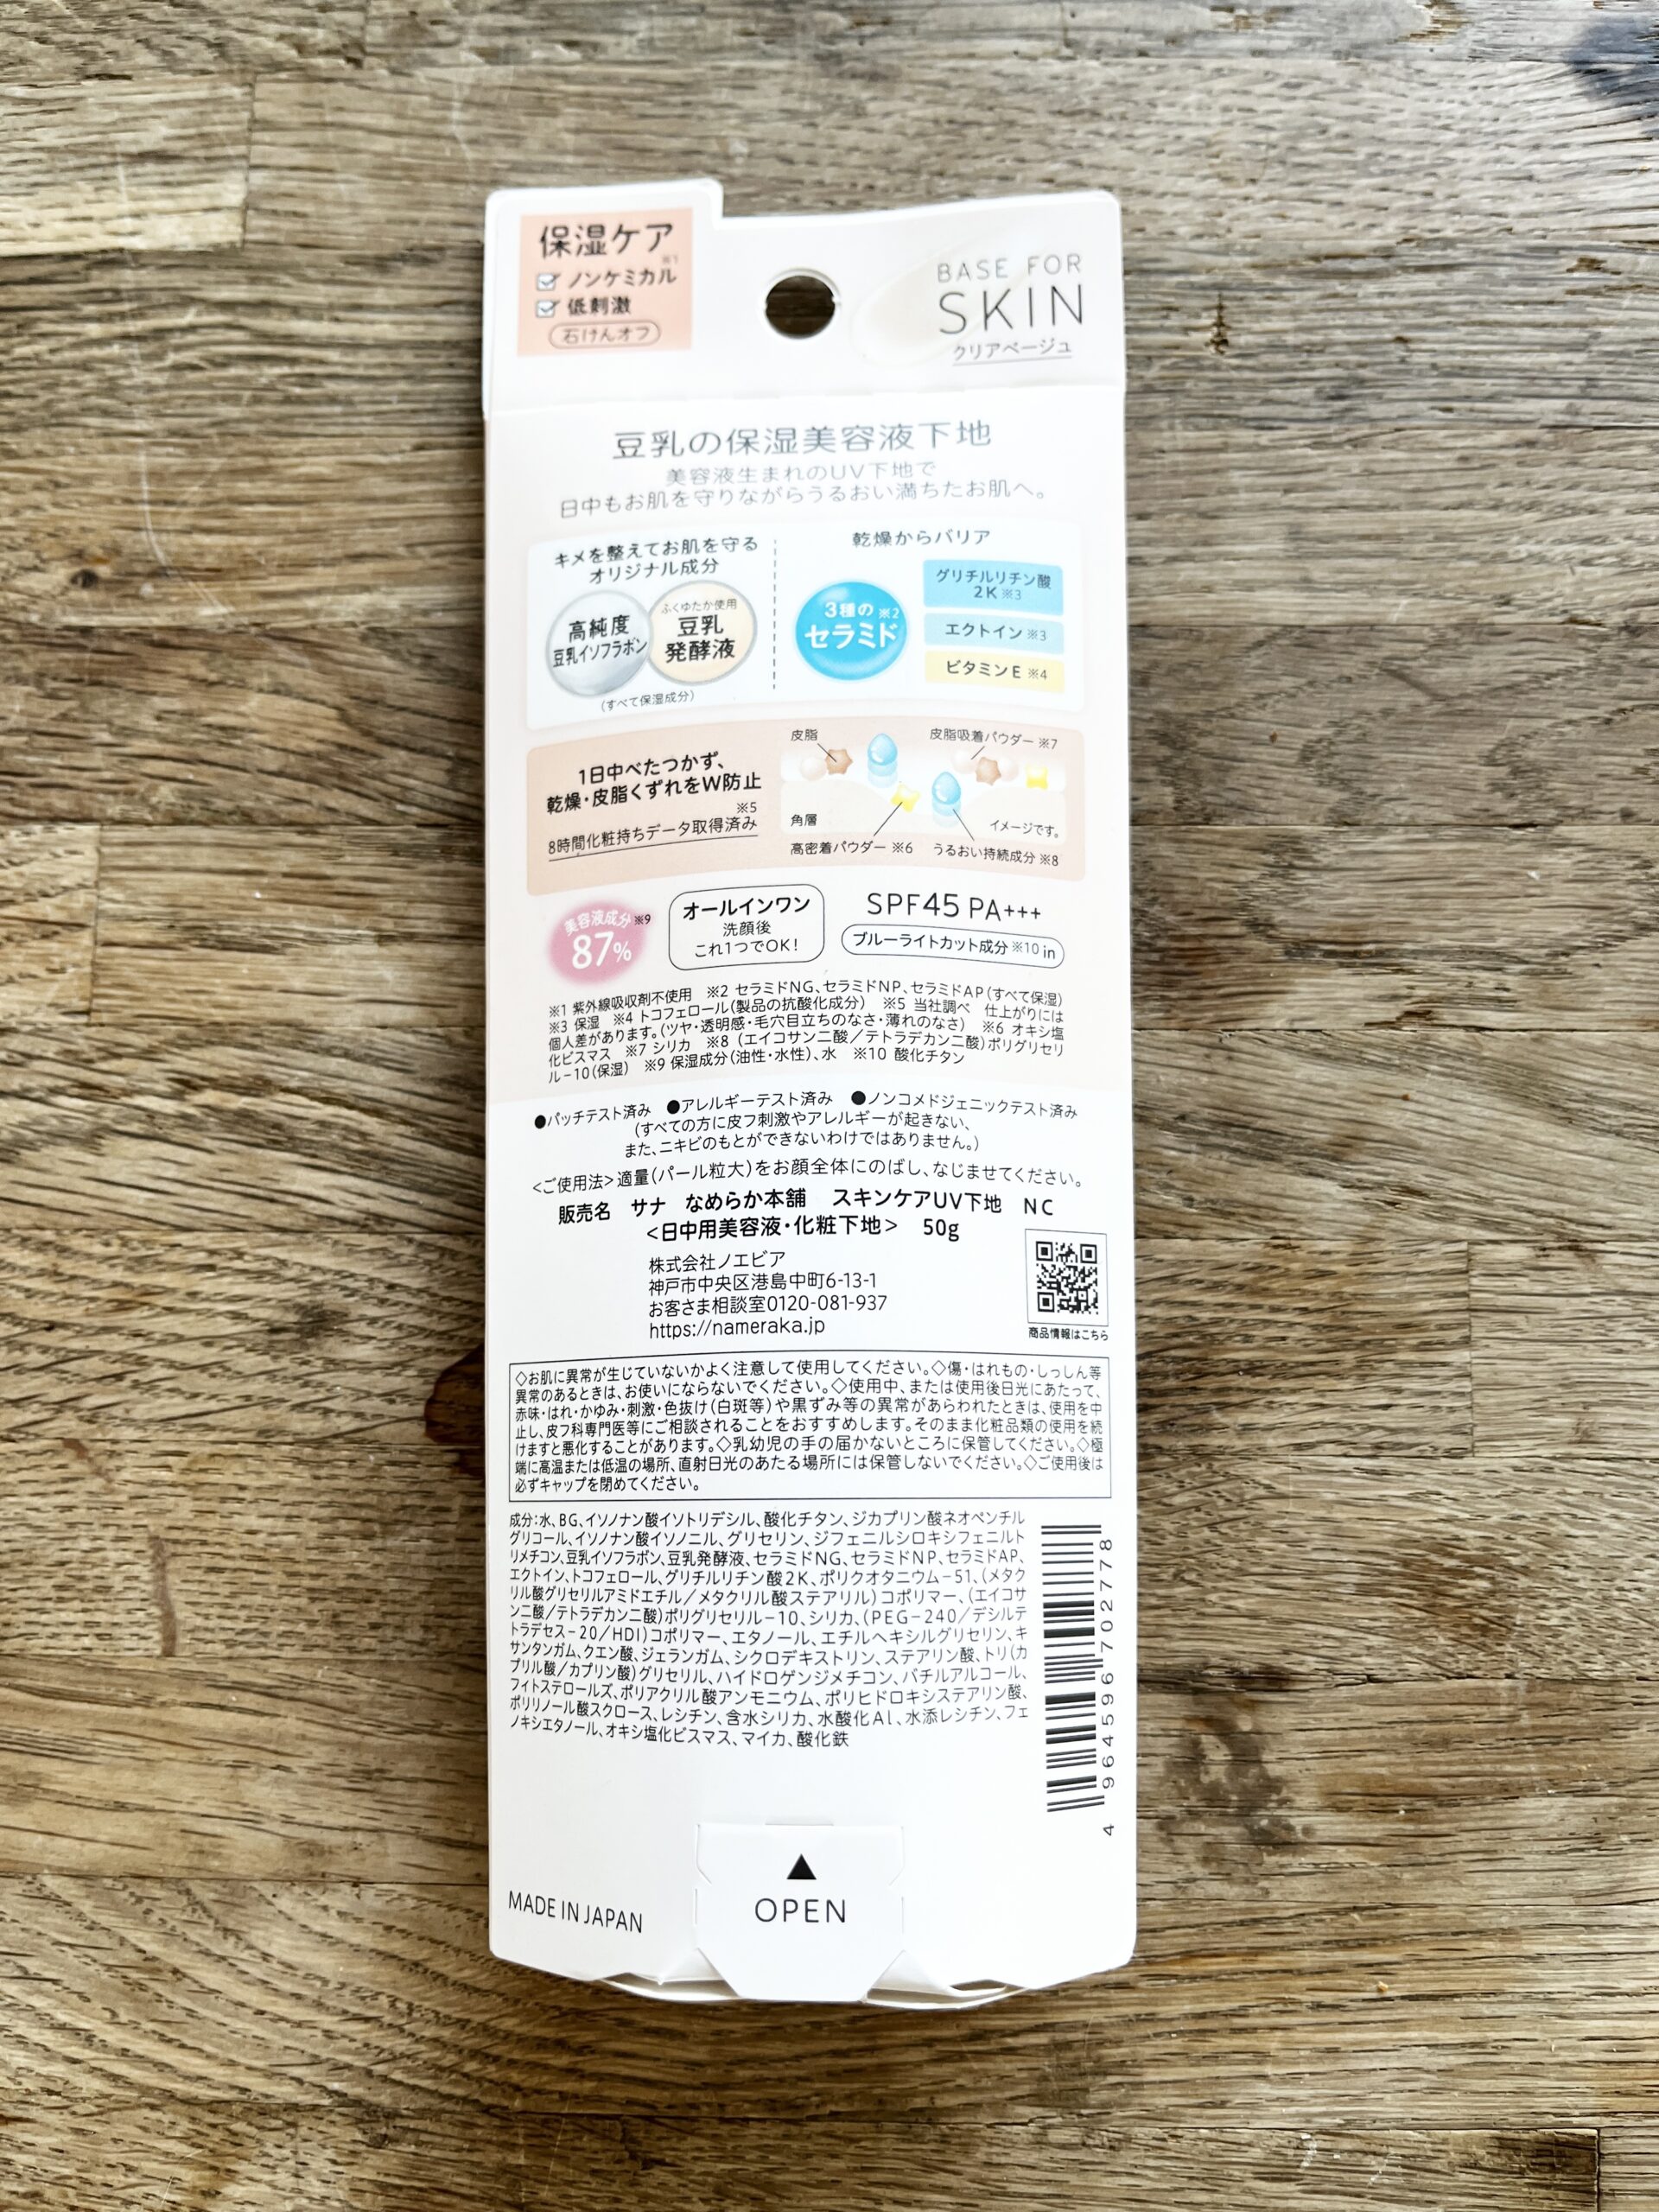 保湿ケア
※1
ノンケミカル
低刺激
石けんオフ
BASE FOR
SKIN
クリアベージュ
豆乳の保湿美容液下地
美容液生まれのUV下地で
日中もお肌を守りながらうるおい満ちたお肌へ。
キメを整えてお肌を守る
オリジナル成分
高純度
豆乳イソフラボン
ふくゆたか使用
豆乳
発酵液
(すべて保湿成分)
乾燥からバリア
3種の※2
セラミド
グリチルリチン酸
2K※3
エクトイン※3
ビタミンE※4
1日中べたつかず、
乾燥・皮脂くずれをW防止
※5
8時間化粧持ちデータ取得済み
皮脂
皮脂吸着パウダー※7
角層
イメージです。
高密着パウダー※6
うるおい持続成分※8
美容液成分※9
87%
オールインワン
洗顔後
これ1つでOK!
SPF45 PA+++
ブルーライトカット成分※10 in
※1 紫外線吸収剤不使用 ※2 セラミドNG、セラミドNP、セラミドAP(すべて保湿)
※3 保湿 ※4 トコフェロール(製品の抗酸化成分) ※5 当社調べ 仕上がりには
個人差があります。(ツヤ・透明感・毛穴目立ちのなさ・薄れのなさ) ※6 オキシ塩
化ビスマス ※7 シリカ ※8 (エイコサン二酸/テトラデカン二酸)ポリグリセリ
ル-10(保湿) ※9 保湿成分(油性・水性)、水 ※10 酸化チタン
●パッチテスト済み ●アレルギーテスト済み ●ノンコメドジェニックテスト済み
(すべての方に皮フ刺激やアレルギーが起きない、
また、ニキビのもとができないわけではありません。)
<ご使用法>適量(パール粒大)をお顔全体にのばし、なじませてください。
販売名 サナ なめらか本舗 スキンケアUV下地 NC
<日中用美容液・化粧下地> 50g
株式会社ノエビア
神戸市中央区港島中町6-13-1
お客さま相談室0120-081-937
https://nameraka.jp
商品情報はこちら
◇お肌に異常が生じていないかよく注意して使用してください。◇傷・はれもの・しっしん等
異常のあるときは、お使いにならないでください。◇使用中、または使用後日光にあたって、
赤味・はれ・かゆみ・刺激・色抜け(白斑等)や黒ずみ等の異常があらわれたときは、使用を中
止し、皮フ科専門医等にご相談されることをおすすめします。そのまま化粧品類の使用を続
けますと悪化することがあります。◇乳幼児の手の届かないところに保管してください。◇極
端に高温または低温の場所、直射日光のあたる場所には保管しないでください。◇ご使用後は
必ずキャップを閉めてください。
成分:水、BG、イソノナン酸イソトリデシル、酸化チタン、ジカプリン酸ネオペンチル
グリコール、イソノナン酸イソノニル、グリセリン、ジフェニルシロキシフェニルト
リメチコン、豆乳イソフラボン、豆乳発酵液、セラミドNG、セラミドNP、セラミドAP、
エクトイン、トコフェロール、グリチルリチン酸2K、ポリクオタニウム-51、(メタク
リル酸グリセリルアミドエチル/メタクリル酸ステアリル)コポリマー、(エイコサ
ン二酸/テトラデカン二酸)ポリグリセリル-10、シリカ、(PEG-240/デシルテ
トラデセス-20/HDI)コポリマー、エタノール、エチルヘキシルグリセリン、キ
サンタンガム、クエン酸、ジェランガム、シクロデキストリン、ステアリン酸、トリ(カ
プリル酸/カプリン酸)グリセリル、ハイドロゲンジメチコン、バチルアルコール、
フィトステロールズ、ポリアクリル酸アンモニウム、ポリヒドロキシステアリン酸、
ポリリノール酸スクロース、レシチン、含水シリカ、水酸化Al、水添レシチン、フェ
ノキシエタノール、オキシ塩化ビスマス、マイカ、酸化鉄
4 964596 702778
MADE IN JAPAN
▲
OPEN